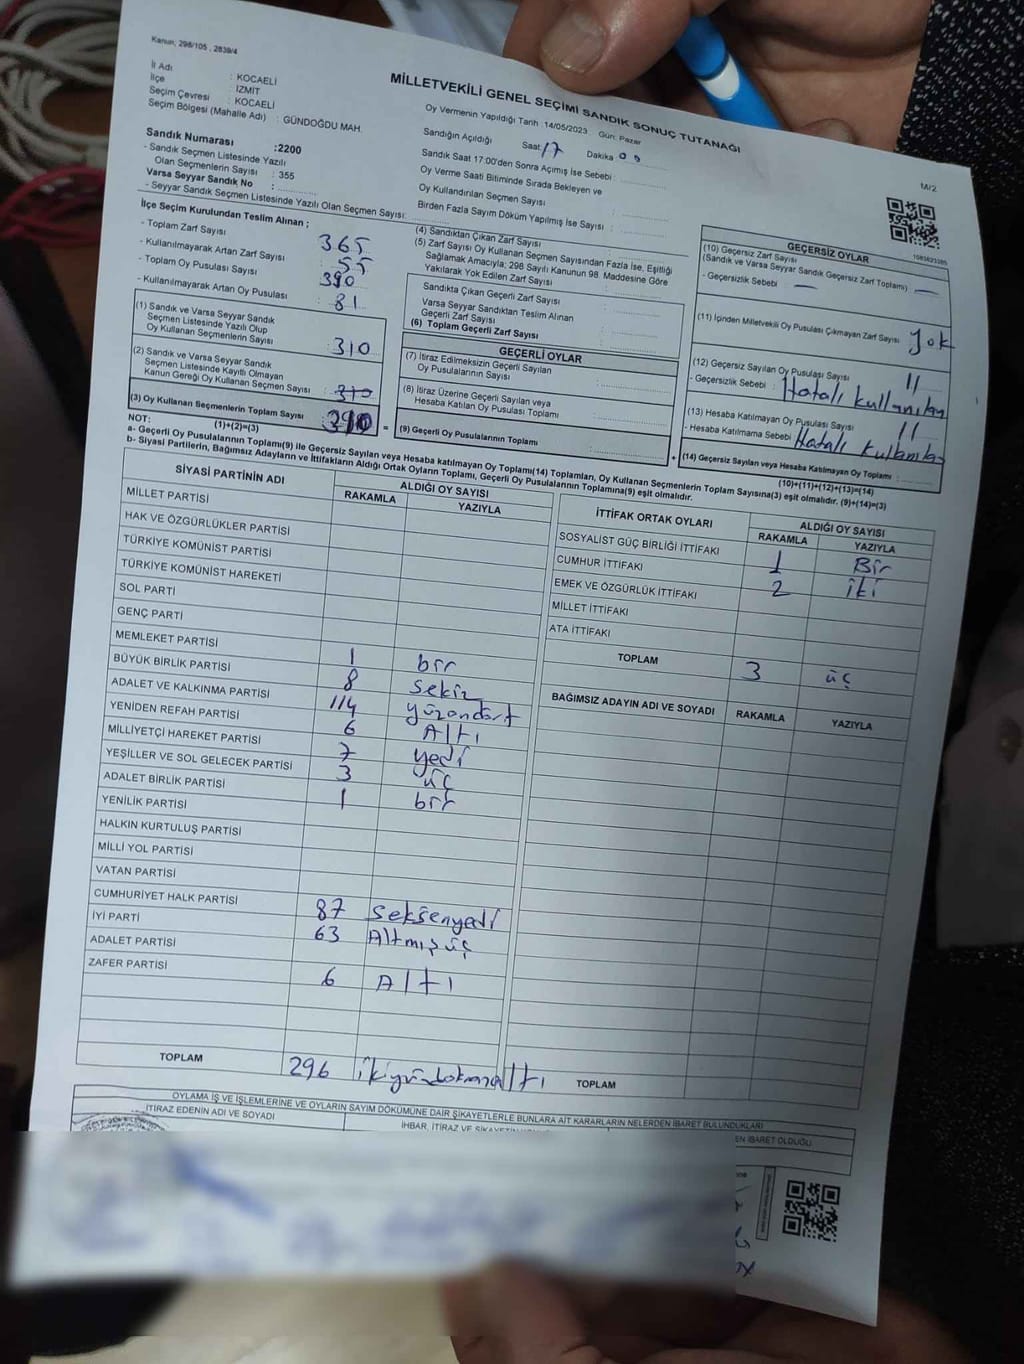 Kanun; 298/105 , 2839/4
MİLLETVEKİLİ GENEL SEÇİMİ SANDIK SONUÇ TUTANAĞI
İl Adı : KOCAELİ
İlçe : İZMİT
Seçim Çevresi : KOCAELİ
Seçim Bölgesi (Mahalle Adı) : GÜNDOĞDU MAH.
Sandık Numarası :2200
- Sandık Seçmen Listesinde Yazılı
Olan Seçmenlerin Sayısı : 355
Varsa Seyyar Sandık No :
- Seyyar Sandık Seçmen Listesinde Yazılı Olan Seçmen Sayısı:
Oy Vermenin Yapıldığı Tarih :14/05/2023 Gün: Pazar
Sandığın Açıldığı Saat 17 Dakika
Sandık Saat 17:00'den Sonra Açımış İse Sebebi :
Oy Verme Saati Bitiminde Sırada Bekleyen ve
Oy Kullandırılan Seçmen Sayısı :
Birden Fazla Sayım Döküm Yapılmış İse Sayısı :
M/2
İlçe Seçim Kurulundan Teslim Alınan ;
- Toplam Zarf Sayısı 365
- Kullanılmayarak Artan Zarf Sayısı 55
- Toplam Oy Pusulası Sayısı 390
- Kullanılmayarak Artan Oy Pusulası : 81
(1) Sandık ve Varsa Seyyar Sandık
Seçmen Listesinde Yazılı Olup
Oy Kullanan Seçmenlerin Sayısı : 310
(2) Sandık ve Varsa Seyyar Sandık
Seçmen Listesinde Kayıtlı Olmayan
Kanun Gereği Oy Kullanan Seçmen Sayısı : 310
(3) Oy Kullanan Seçmenlerin Toplam Sayısı
(1)+(2)=(3)
(4) Sandıktan Çıkan Zarf Sayısı :
(5) Zarf Sayısı Oy Kullanan Seçmen Sayısından Fazla İse, Eşitliği
Sağlamak Amacıyla; 298 Sayılı Kanunun 98. Maddesine Göre
Yakılarak Yok Edilen Zarf Sayısı :
Sandıkta Çıkan Geçerli Zarf Sayısı :
Varsa Seyyar Sandıktan Teslim Alınan
Geçerli Zarf Sayısı :
(6) Toplam Geçerli Zarf Sayısı :
GEÇERLİ OYLAR
(7) İtiraz Edilmeksizin Geçerli Sayılan
Oy Pusulalarının Sayısı :
(8) İtiraz Üzerine Geçerli Sayılan veya
Hesaba Katılan Oy Pusulası Toplamı :
= (9) Geçerli Oy Pusulalarının Toplamı :
GEÇERSİZ OYLAR
(10) Geçersiz Zarf Sayısı
(Sandık ve Varsa Seyyar Sandık Geçersiz Zarf Toplamı) : —
- Geçersizlik Sebebi : —
(11) İçinden Milletvekili Oy Pusulası Çıkmayan Zarf Sayısı : yok
(12) Geçersiz Sayılan Oy Pusulası Sayısı : 11
- Geçersizlik Sebebi : Hatalı kullanılan
(13) Hesaba Katılmayan Oy Pusulası Sayısı : 11
- Hesaba Katılmama Sebebi Hatalı kullanılan
+ (14) Geçersiz Sayılan veya Hesaba Katılmayan Oy Toplamı :
(10)+(11)+(12)+(13)=(14)
NOT:
a- Geçerli Oy Pusulalarının Toplamı(9) ile Geçersiz Sayılan veya Hesaba katılmayan Oy Toplamı(14) Toplamları, Oy Kullanan Seçmenlerin Toplam Sayısına(3) eşit olmalıdır. (9)+(14)=(3)
b- Siyasi Partilerin, Bağımsız Adayların ve İttifakların Aldığı Ortak Oyların Toplamı, Geçerli Oy Pusulalarının Toplamına(9) eşit olmalıdır.
SİYASİ PARTİNİN ADI ALDIĞI OY SAYISI
RAKAMLA YAZIYLA
MİLLET PARTİSİ
HAK VE ÖZGÜRLÜKLER PARTİSİ
TÜRKİYE KOMÜNİST PARTİSİ
TÜRKİYE KOMÜNİST HAREKETİ
SOL PARTİ
GENÇ PARTİ
MEMLEKET PARTİSİ 1 bir
BÜYÜK BİRLİK PARTİSİ 8 Sekiz
ADALET VE KALKINMA PARTİSİ 114 yüzondört
YENİDEN REFAH PARTİSİ 6 Altı
MİLLİYETÇİ HAREKET PARTİSİ 7 yedi
YEŞİLLER VE SOL GELECEK PARTİSİ 3 üç
ADALET BİRLİK PARTİSİ 1 bir
YENİLİK PARTİSİ
HALKIN KURTULUŞ PARTİSİ
MİLLİ YOL PARTİSİ
VATAN PARTİSİ
CUMHURİYET HALK PARTİSİ 87 seksenyedi
İYİ PARTİ 63 Altmışüç
ADALET PARTİSİ
ZAFER PARTİSİ 6 Altı
TOPLAM 296 ikiyüzdoksanaltı
İTTİFAK ORTAK OYLARI ALDIĞI OY SAYISI
RAKAMLA YAZIYLA
SOSYALİST GÜÇ BİRLİĞİ İTTİFAKI 1 Bir
CUMHUR İTTİFAKI 2 iki
EMEK VE ÖZGÜRLÜK İTTİFAKI
MİLLET İTTİFAKI
ATA İTTİFAKI
TOPLAM 3 üç
BAĞIMSIZ ADAYIN ADI VE SOYADI RAKAMLA YAZIYLA
TOPLAM
OYLAMA İŞ VE İŞLEMLERİNE VE OYLARIN SAYIM DÖKÜMÜNE DAİR ŞİKAYETLERLE BUNLARA AİT KARARLARIN NELERDEN İBARET BULUNDUKLARI
İTİRAZ EDENİN ADI VE SOYADI
İHBAR, İTİRAZ VE
EN İBARET OLDUĞU